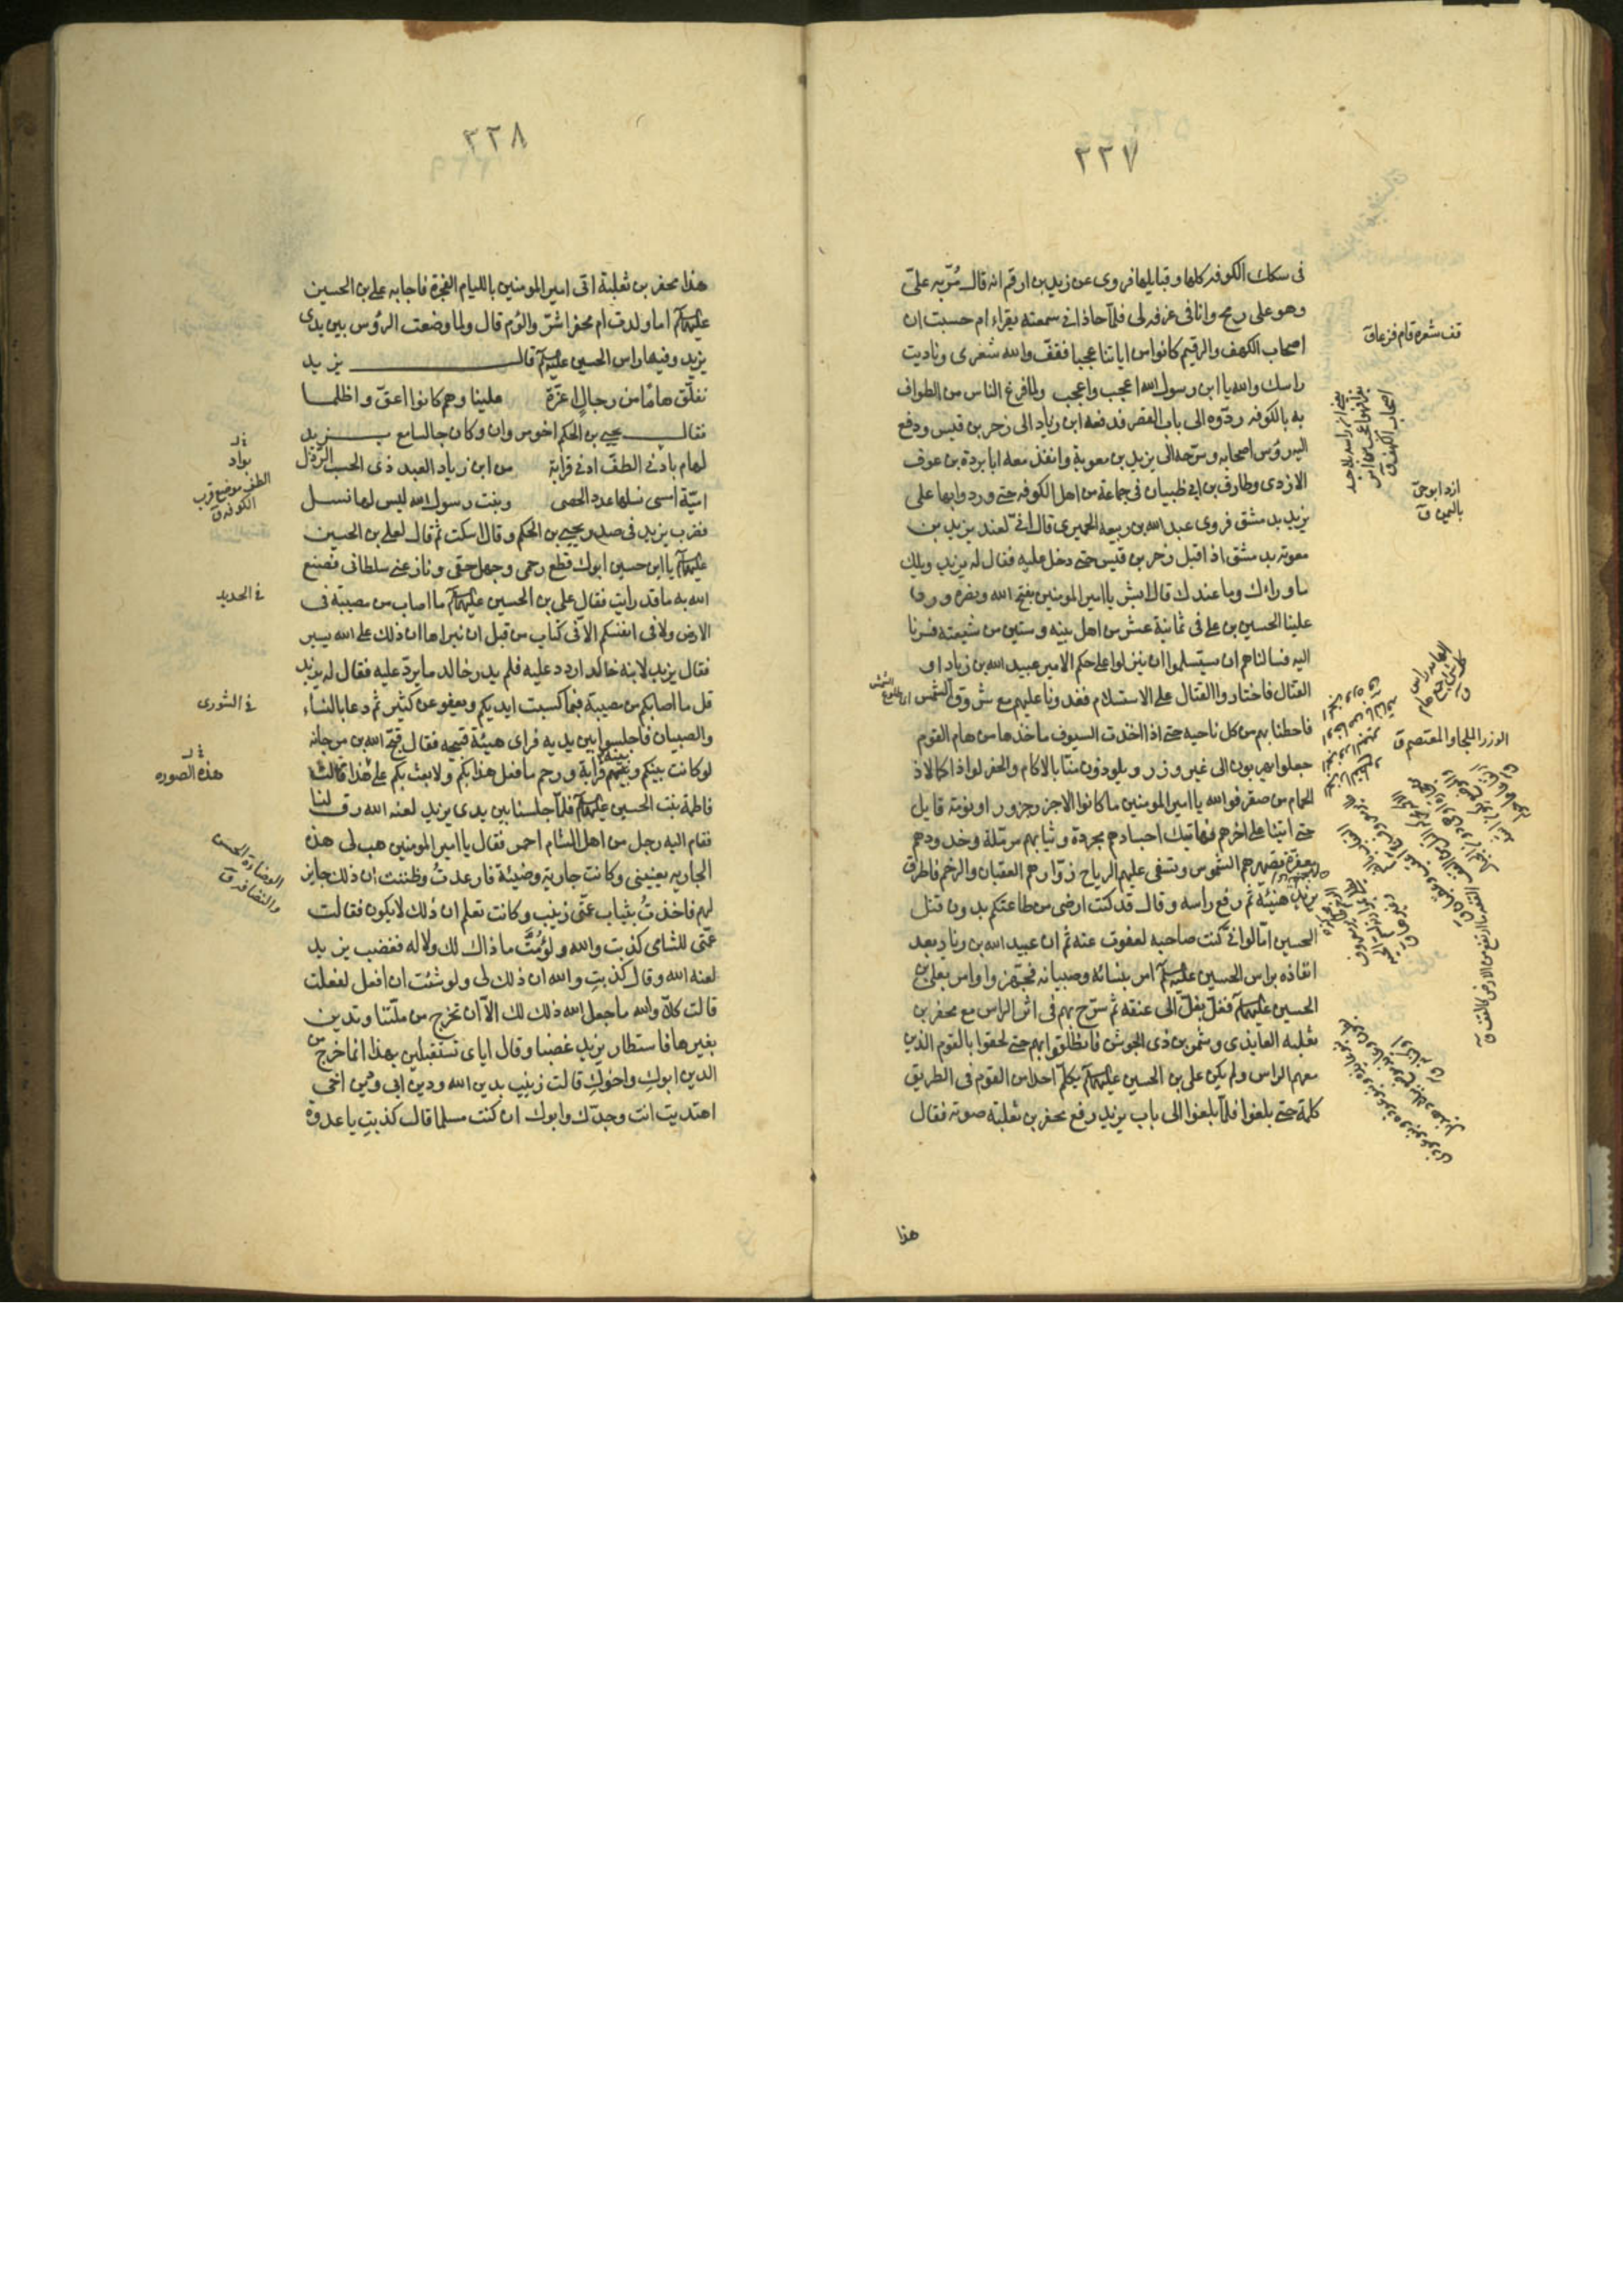 ٢٢٧
فى سكك الكوفه كلها وقبايلها فروى عن زيد بن ارقم انه قال مُرّ به علىّ
وهو على رمح وانا فى غرفه لى فلمّا حاذانى سمعته يقراء ام حسبت ان
اصحاب الكهف والرقيم كانوا من اياتنا عجبا فقفّ والله شعرى وناديت
راسك والله يا ابن رسول الله اعجب واعجب ولما فرغ الناس من الطواف
به بالكوفه ردّوه الى باب القصر فدفعه ابن زياد الى زحر بن قيس ودفع
اليه رؤس اصحابه وسرّحه الى يزيد بن معوية وانفذ معه ابا بردة بن عوف
الازدى وطارق بن ابى ظبيان فى جماعة من اهل الكوفه حتى وردوا بها على
يزيد بدمشق فروى عبد الله بن ربيعه الحميرى قال انّى لعند يزيد بن
معوية بدمشق اذا اقبل زحر بن قيس حتى دخل عليه فقال له يزيد ويلك
ما وراءك وما عندك قال ابشر يا امير المومنين بفتح الله ونصره ورد
علينا الحسين بن على فى ثمانية عشر من اهل بيته وستين من شيعته فسرنا
اليه فسالناهم ان يستسلموا ان ينزلوا على حكم الامير عبيد الله بن زياد او
القتال فاختاروا القتال على الاستسلام فغدونا عليهم مع شروق الشمس
فاحطنا بهم من كل ناحيه حتى اذا اخذت السيوف ماخذها من هام القوم
جعلوا يهربون الى غير وزر ويلوذون منّا بالاكام والحفر لواذا كما لاذ
الحمام من صقر فو الله يا امير المومنين ما كانوا الا جزر جزور او نومة قايل
حتى اتينا على اخرهم فهاتيك اجسادهم مجردة وثيابهم مرمّلة وخدودهم
معفرة تصهرهم الشموس وتسفى عليهم الرياح زوّارهم العقبان والرخم فاطرق
يزيد هنيئة ثم رفع راسه وقال قد كنت ارضى من طاعتكم بدون قتل
الحسين امّا لو انّى كنت صاحبه لعفوت عنه ثم ان عبيد الله بن زياد بعد
انفاذه براس الحسين عليه السلام امر بنسائه وصبيانه فجهّزوا وامر بعلى بن
الحسين عليهما السلام فغلّ بغلّ الى عنقه ثم سرّح بهم فى اثر الراس مع محفر بن
ثعلبه العايذى وشمر بن ذى الجوشن فانطلقوا بهم حتى لحقوا بالقوم الذين
معهم الراس ولم يكن على بن الحسين عليهما السلام يكلّم احدا من القوم فى الطريق
كلمة حتى بلغوا فلمّا بلغوا الى باب يزيد رفع محفر بن ثعلبة صوته فقال
هذا
قف شعره قام فزعا ق
ازد ابو حى
باليمن ق
الوزر الملجا والمعتصم ق
٢٢٨
هذا محفر بن ثعلبة اتى امير المومنين بالليام الفجرة فاجابه على بن الحسين
عليهما السلام ما ولدت ام محفر اشرّ والؤم قال ولما وضعت الرؤس بين يدى
يزيد وفيها راس الحسين عليه السلام قال يزيد
نفلّق هامًا من رجالٍ اعزّة علينا وهم كانوا اعقّ واظلما
فقال يحيى بن الحكم اخو مروان وكان جالسا مع يزيد
لهام بادنى الطفّ ادنى قرابة من ابن زياد العبد ذى الحسب الرّذل
اميّة امسى نسلها عدد الحصى وبنت رسول الله ليس لها نسل
فضرب يزيد فى صدر يحيى بن الحكم وقال اسكت ثم قال لعلى بن الحسين
عليهما السلام يا ابن حسين ابوك قطع رحمى وجهل حقّى ونازعنى سلطانى فصنع
الله به ما قد رايت فقال على بن الحسين عليهما السلام ما اصاب من مصيبة فى
الارض ولا فى انفسكم الا فى كتاب من قبل ان نبراها ان ذلك على الله يسير
فقال يزيد لابنه خالد اردد عليه فلم يدر خالد ما يردّ عليه فقال له يزيد
قل ما اصابكم من مصيبة فبما كسبت ايديكم ويعفو عن كثير ثم دعا بالنساء
والصبيان فاجلسوا بين يديه فراى هيئة قبيحه فقال قبّح الله بن مرجانه
لو كانت بينكم وبينه قرابة ورحم ما فعل هذا بكم ولا بعث بكم على هذا قالت
فاطمة بنت الحسين عليهما السلام فلمّا جلسنا بين يدى يزيد لعنه الله رق لنا
فقام اليه رجل من اهل الشام احمر فقال يا امير المومنين هب لى هذه
الجاريه يعيننى وكانت جارية وضيئة فارعدتُ وظننت ان ذلك جايز
لهم فاخذتُ بثياب عمّتى زينب وكانت تعلم ان ذلك لا يكون فقالت
عمّتى للشامى كذبت والله ولؤمتَ ما ذاك لك ولا له فغضب يزيد
لعنه الله وقال كذبتِ والله ان ذلك لى ولو شئت ان افعل لفعلت
قالت كلّا والله ما جعل الله ذلك لك الّا ان تخرج من ملّتنا وتدين
بغيرها فاستطار يزيد غضبا وقال اياى تستقبلين بهذا انما خرج من
الدين ابوكِ واخوكِ قالت زينب بدين الله ودين ابى ودين اخى
اهتديت انت وجدّك وابوك ان كنت مسلما قال كذبتِ يا عدوة
بواد
الطف موضع قرب
الكوفه ق
فى الحديد
فى الشورى
هذه الصوره
الوضاءة الحسن
والنضافه ق